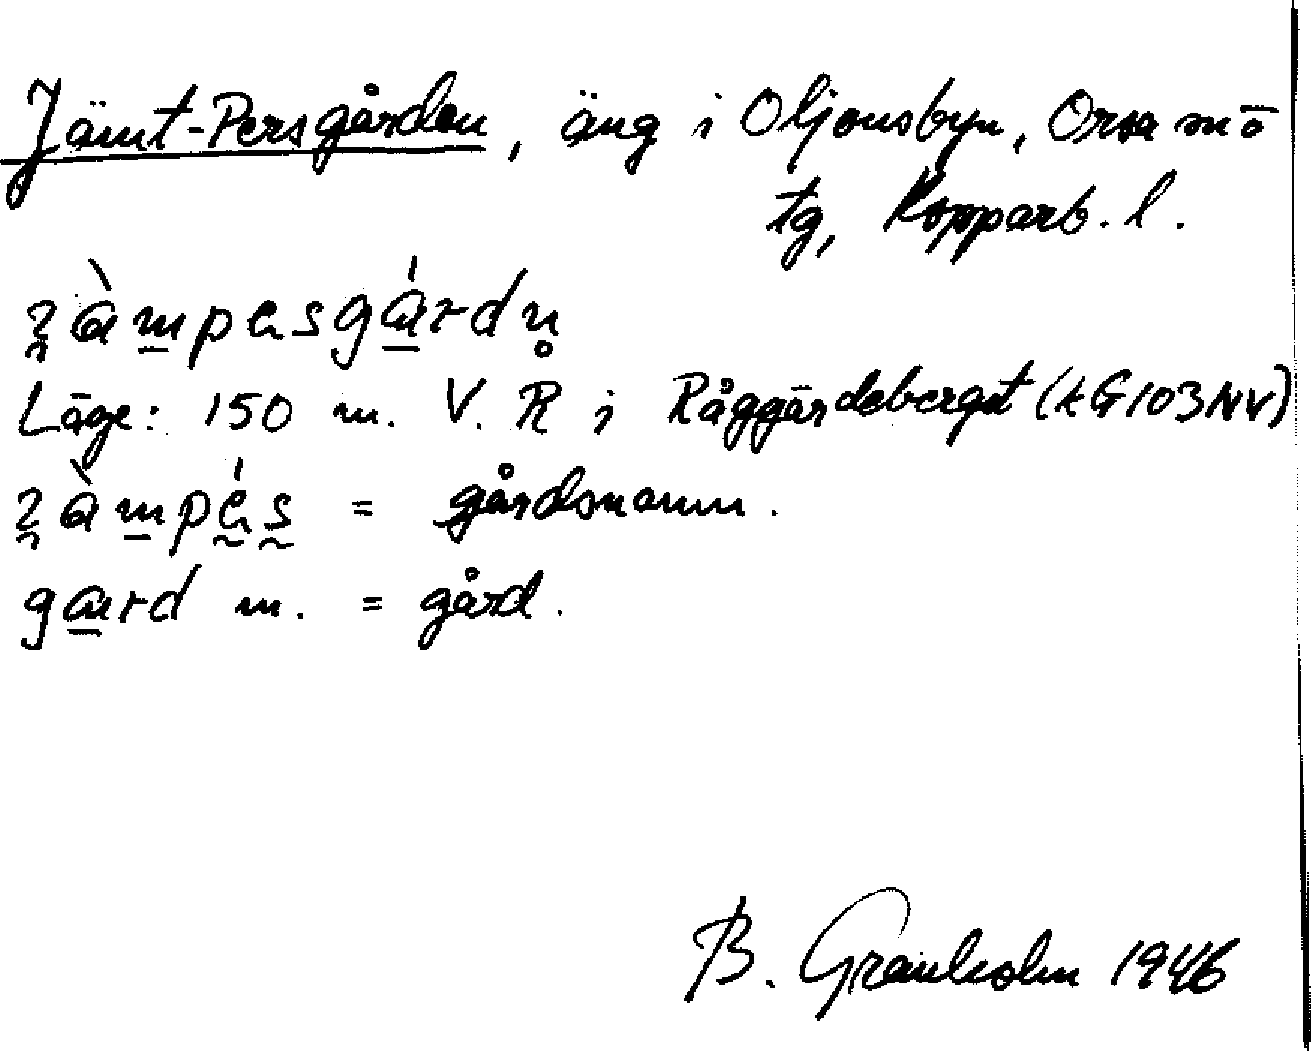 Jämt-Persgården, äng i Oljonsbyn, Orsa sn ö
tg, Kopparb. l.
Läge: 150 m. V. R i Råggärdeberget (kG103NV)
= gårdsnamn.
gard m. = gård.
B. Granholm 1946